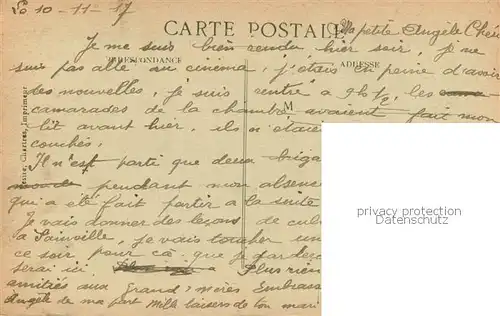 Le 10-11-17
CARTE POSTALE
Ma petite Angèle Chérie
Je me suis bien rendu hier soir, je ne
CORRESPONDANCE
ADRESSE
suis pas allé au cinéma, j'étais en peine d'avoir
des nouvelles, je suis rentré à 9h ½, les
M
camarades de la chambre avaient fait mon
lit avant hier, ils n'étaient
couchés.
Il n'est parti que deux
pendant mon absence
qui a été fait partir a la suite
Je vais donner des leçons de
a Sainville, je vais toucher un
ce soir, pour ça que je
serai ici Plus rien
amitiés aux Grand'mères Embrasse
Angèle de ma part Mille baisers de ton mari
Chartres, Imprimeur
privacy protection
Datenschutz